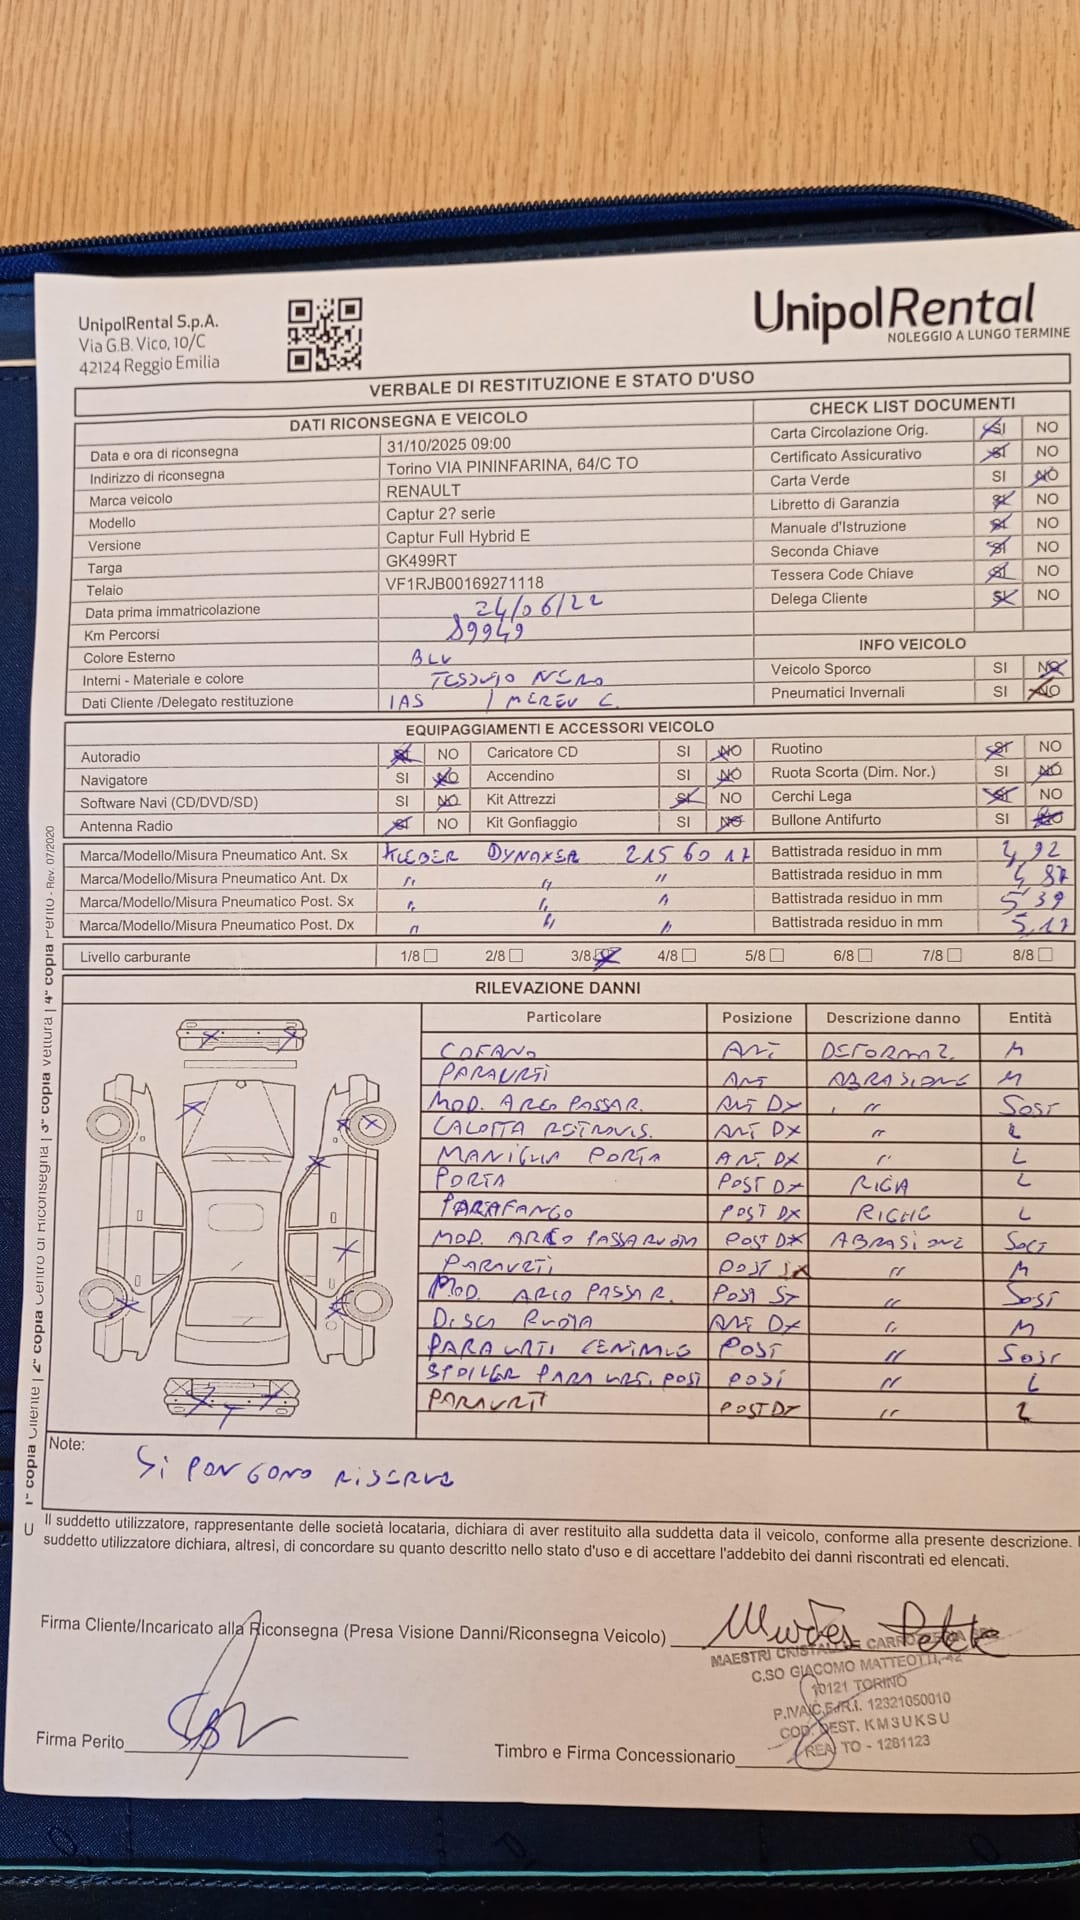 UnipolRental S.p.A.
Via G.B. Vico, 10/C
42124 Reggio Emilia
UnipolRental
NOLEGGIO A LUNGO TERMINE
VERBALE DI RESTITUZIONE E STATO D'USO
DATI RICONSEGNA E VEICOLO
Data e ora di riconsegna 31/10/2025 09:00
Indirizzo di riconsegna Torino VIA PININFARINA, 64/C TO
Marca veicolo RENAULT
Modello Captur 2? serie
Versione Captur Full Hybrid E
Targa GK499RT
Telaio VF1RJB00169271118
Data prima immatricolazione 24/06/22
Km Percorsi 89949
Colore Esterno BLU
Interni - Materiale e colore TESSUTO NERO
Dati Cliente /Delegato restituzione IAS / MEREU C.
CHECK LIST DOCUMENTI
Carta Circolazione Orig. SI NO
Certificato Assicurativo SI NO
Carta Verde SI NO
Libretto di Garanzia SI NO
Manuale d'Istruzione SI NO
Seconda Chiave SI NO
Tessera Code Chiave SI NO
Delega Cliente SI NO
INFO VEICOLO
Veicolo Sporco SI NO
Pneumatici Invernali SI NO
EQUIPAGGIAMENTI E ACCESSORI VEICOLO
Autoradio SI NO Caricatore CD SI NO Ruotino SI NO
Navigatore SI NO Accendino SI NO Ruota Scorta (Dim. Nor.) SI NO
Software Navi (CD/DVD/SD) SI NO Kit Attrezzi SI NO Cerchi Lega SI NO
Antenna Radio SI NO Kit Gonfiaggio SI NO Bullone Antifurto SI NO
Marca/Modello/Misura Pneumatico Ant. Sx KLEBER DYNAXER 215 60 17 Battistrada residuo in mm 4,92
Marca/Modello/Misura Pneumatico Ant. Dx " " " Battistrada residuo in mm 4,87
Marca/Modello/Misura Pneumatico Post. Sx " " " Battistrada residuo in mm 5,39
Marca/Modello/Misura Pneumatico Post. Dx " " " Battistrada residuo in mm 5,17
Livello carburante 1/8 2/8 3/8 4/8 5/8 6/8 7/8 8/8
RILEVAZIONE DANNI
Particolare Posizione Descrizione danno Entità
COFANO ANT DEFORMAZ. M
PARAURTI ANT ABRASIONE M
MOD. ARCO PASSAR. ANT DX " SOST
CALOTTA RETROVIS. ANT DX " L
MANIGLIA PORTA ANT. DX " L
PORTA POST DX RIGA L
PARAFANGO POST DX RIGHE L
MOD. ARCO PASSARUOTA POST DX ABRASIONE SOST
PARAURTI POST SX " M
MOD. ARCO PASSAR. POST SX " SOST
DISCO RUOTA ANT DX " M
PARAURTI CENTRALE POST " SOST
SPOILER PARAURTI POST POST " L
PARAURTI POST DX " L
Note:
SI PONGONO RISERVE
Il suddetto utilizzatore, rappresentante delle società locataria, dichiara di aver restituito alla suddetta data il veicolo, conforme alla presente descrizione.
suddetto utilizzatore dichiara, altresì, di concordare su quanto descritto nello stato d'uso e di accettare l'addebito dei danni riscontrati ed elencati.
Firma Cliente/Incaricato alla Riconsegna (Presa Visione Danni/Riconsegna Veicolo)
MAESTRI CRISTALLI E CARROZZERIA
C.SO GIACOMO MATTEOTTI, 42
10121 TORINO
P.IVA/C.F./R.I. 12321050010
COD. DEST. KM3UKSU
REA TO - 1281123
Firma Perito
Timbro e Firma Concessionario
1ª copia Cliente | 2ª copia Centro di Riconsegna | 3ª copia vettura | 4ª copia Perito - Rev. 07/2020